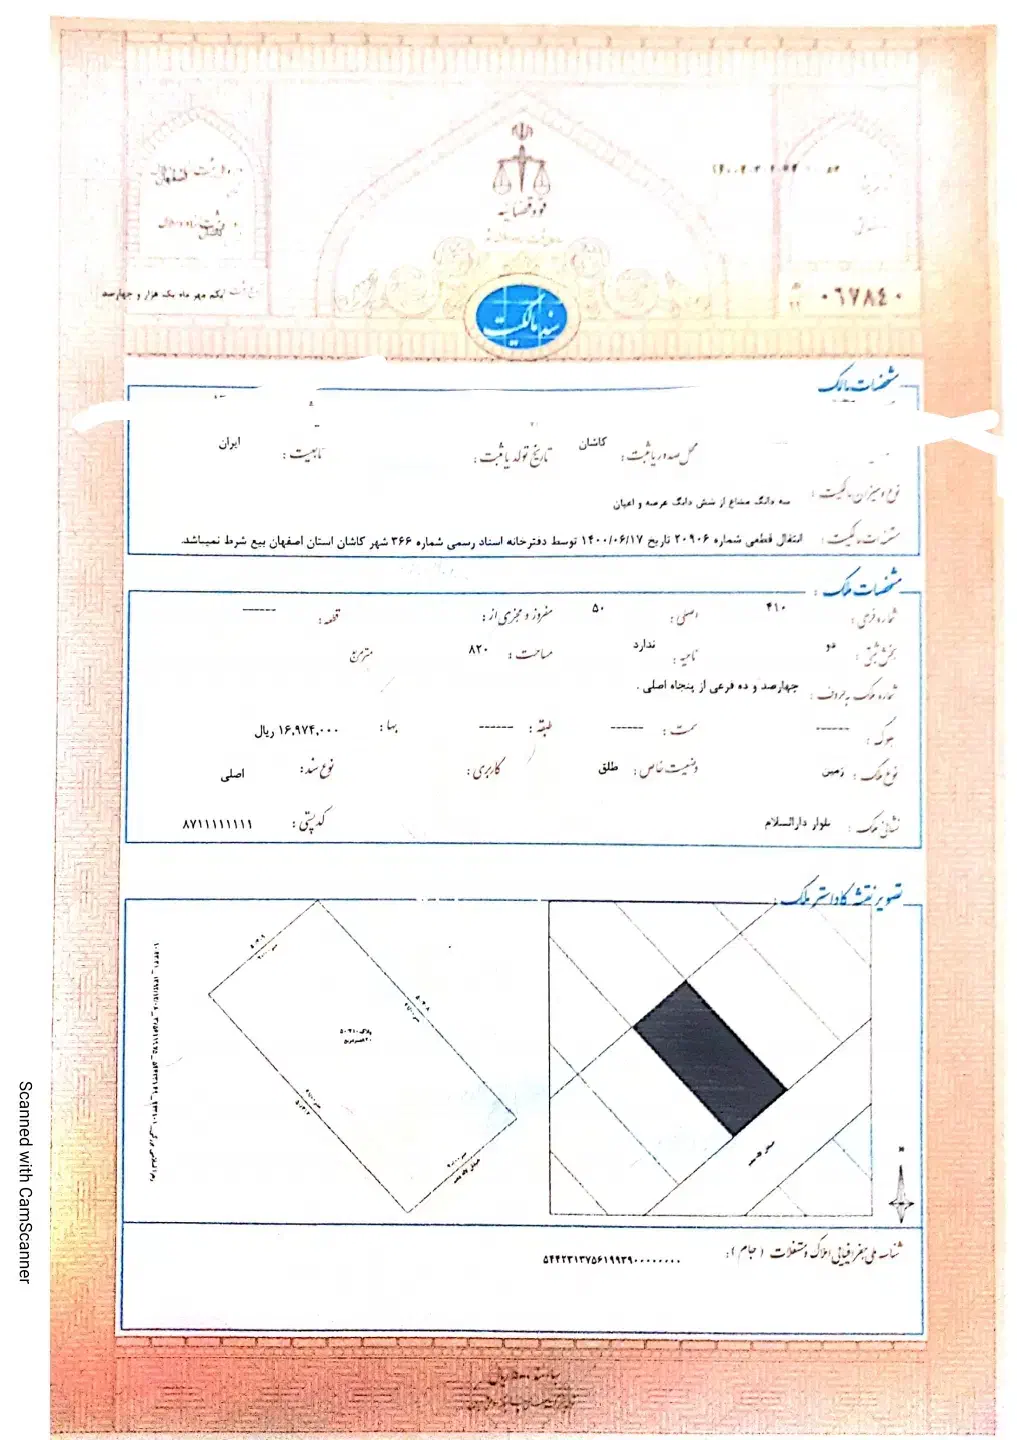 قوه قضاییه
۰۶۷۸۴۰
یکم مهر ماه یک هزار و چهارصد
سند مالکیت
مشخصات مالک
محل صدور یا ثبت: کاشان تاریخ تولد یا ثبت: تابعیت: ایران
نوع و میزان مالکیت: سه دانگ مشاع از شش دانگ عرصه و اعیان
مستندات مالکیت: انتقال قطعی شماره ۲۰۹۰۶ تاریخ ۱۴۰۰/۰۶/۱۷ توسط دفترخانه اسناد رسمی شماره ۳۶۶ شهر کاشان استان اصفهان بیع شرط نمیباشد.
مشخصات ملک:
شماره فرعی: ۴۱۰ اصلی: ۵۰ مفروز و مجزی از: قطعه: ------
بخش ثبتی: دو ناحیه: ندارد مساحت: ۸۲۰ مترمربع
شماره ملک به حروف: چهارصد و ده فرعی از پنجاه اصلی.
بلوک: ------ سمت: ------ طبقه: ------ بها: ۱۶,۹۷۴,۰۰۰ ریال
نوع ملک: زمین وضعیت خاص: طلق کاربری: نوع سند: اصلی
نشانی ملک: بلوار دارالسلام کدپستی: ۸۷۱۱۱۱۱۱۱۱
تصویر نقشه کاداستر ملک:
شناسه ملی جغرافیایی املاک و مستغلات (جام): ۵۴۴۲۳۱۳۷۵۶۱۹۹۳۹۰۰۰۰۰۰۰۰
Scanned with CamScanner